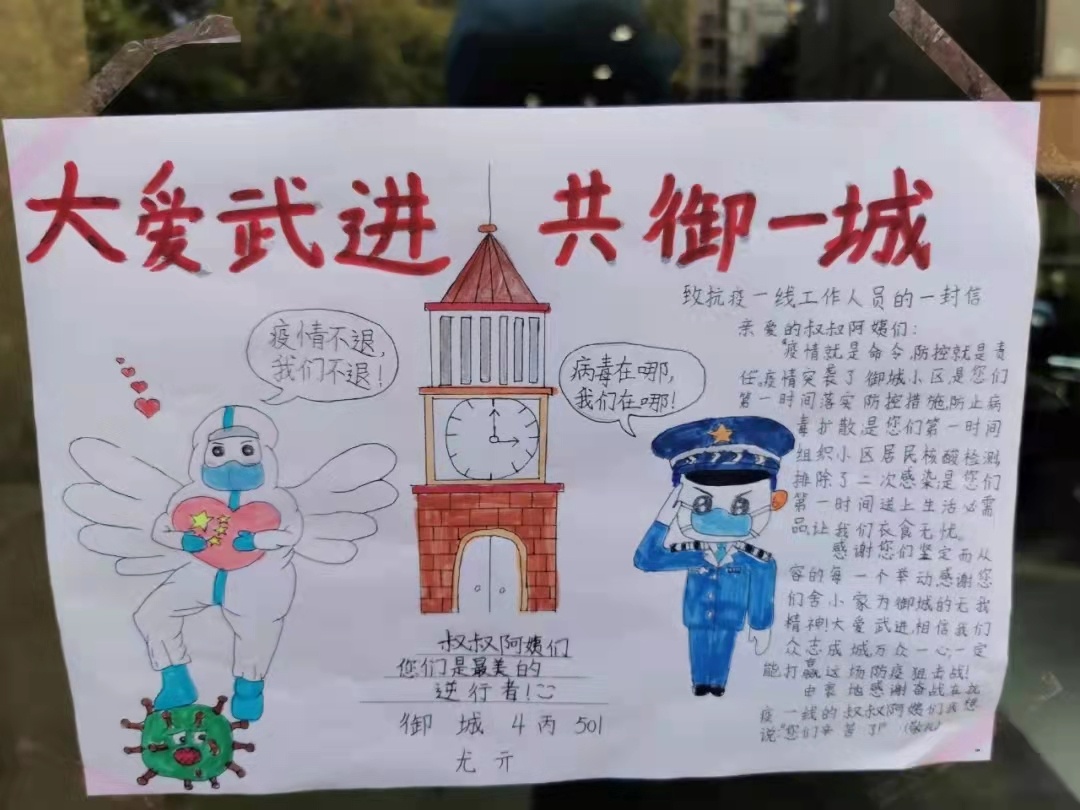 大爱武进 共御一城
疫情不退,
我们不退!
病毒在哪,
我们在哪!
叔叔阿姨们
您们是最美的
逆行者!
御城4丙501
尤亓
致抗疫一线工作人员的一封信
亲爱的叔叔阿姨们:
"疫情就是命令,防控就是责
任。疫情突袭了御城小区,是您们
第一时间落实防控措施,防止病
毒扩散;是您们第一时间
组织小区居民核酸检测,
排除了二次感染;是您们
第一时间送上生活必需
品,让我们衣食无忧。
感谢您们坚定而从
容的每一个举动,感谢您
们舍小家为御城的无我
精神!大爱武进,相信我们
众志成城,万众一心,一定
能打赢这场防疫狙击战!
由衷地感谢奋战在抗
疫一线的叔叔阿姨们,我想
说:"您们辛苦了!"(敬礼)